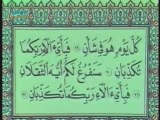 كُلَّ يَوْمٍ هُوَ فِي شَأْنٍ ٢٩ فَبِأَيِّ آلَاءِ رَبِّكُمَا
تُكَذِّبَانِ ٣٠ سَنَفْرُغُ لَكُمْ أَيُّهَ الثَّقَلَانِ
٣١ فَبِأَيِّ آلَاءِ رَبِّكُمَا تُكَذِّبَانِ ٣٢